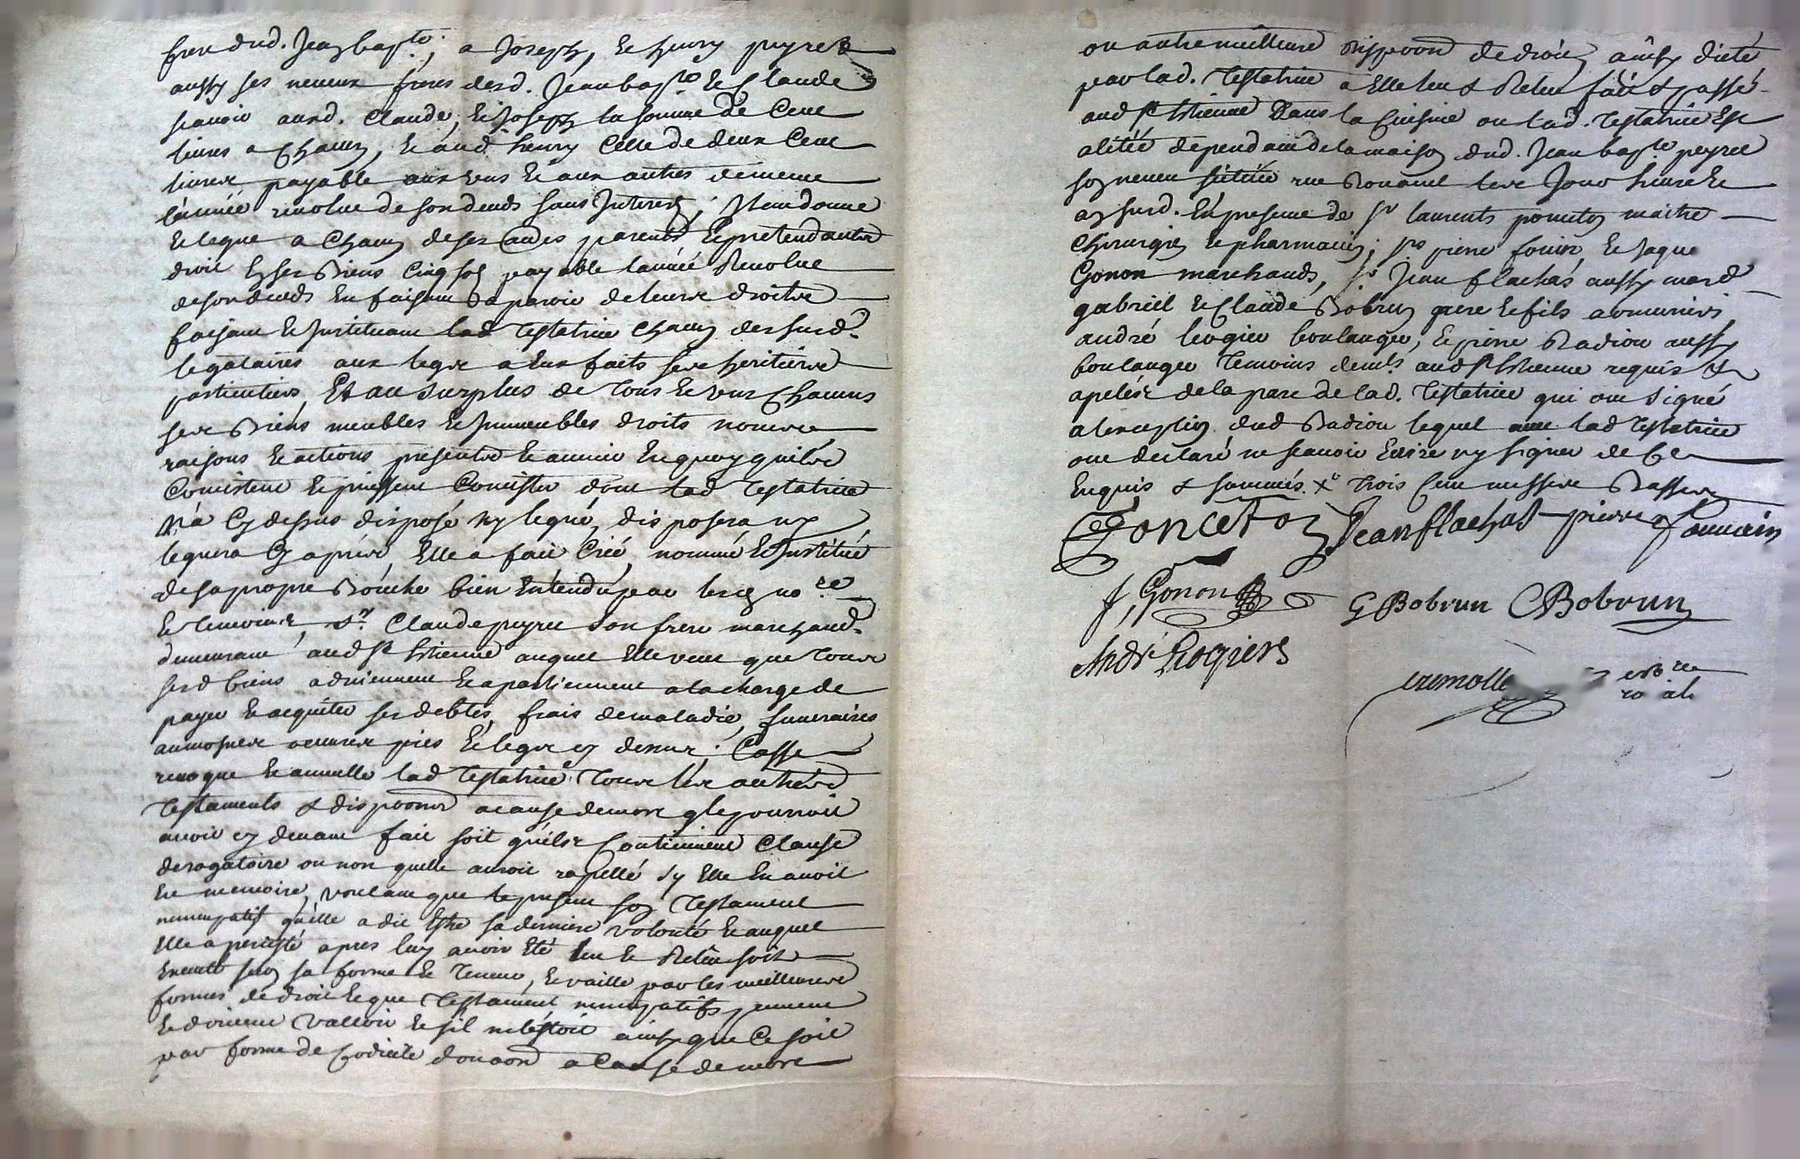 frere dud. Jean bapte; a Joseph, & henry peyret
aussy ses neveux freres desd. Jean bapte & Claude
scavoir aud. Claude, & Joseph la somme de Cent
livres a Chacun, & aud. henry Celle de deux Cent
livres payable aux uns & aux autres dememe
lannée revolue de son deceds sans Interest; Item donne
& legue a Chacun de ses autres parents & pretendants
droit En ses Biens Cinq sols payable lannée Revolue
de son deceds En faisant Separoir de leurs droits
faisant & Instituant lad. Testatrice Chacun dessusd.
legataires aux legs a Eux faits ses heritiers
particuliers, Et au surplus de Tous & uns Chacuns
ses Biens meubles & Immeubles droits noms
raisons & actions presents & avenir En quoy quils
Consistent & puissent Consister dont lad Testatrice
n'a Cy dessus disposé ny legué, disposera ny
leguera Cy après, Elle a fait Créé, nommé & Institué
de sa propre Bouche bien Entendu par lesd no.re
& temoins, Sr. Claude peyret son frere marchand
demeurant aud St Etienne auquel Elle veut que Tous
sesd biens adviennent & apartiennent a la charge de
payer & acquiter ses debtes, frais de maladie, funeraires
aumosnes oeuvres pies & legs cy dessus. Casse
revoque & annulle lad Testatrice Tous les autres
Testaments & dispoons a cause de mort qle pourroit
avoir cy devant fait soit quils Contiennent Clause
derogatoire ou non quelle auroit rapellé sy Elle En avoit
En memoire, voulant que le present son Testament
nuncupatif quelle a dit Estre sa derniere volonté & auquel
Elle a persisté apres luy avoir Eté leu & Releu soit
Executé selon sa forme & Teneur, & vaille par les meilleures
formes de droit & que Testament nuncupatifs peuvent
& doivent Valloir & sil nestoit ainsy que Ce soit
par forme de Codicile donaon a Cause de mort
ou autre meilleure disppoon de droit, ainsy dicté
par lad. Testatrice a Elle leu & Releu fait & passé
aud St Etienne Dans la Cuisine ou lad. Testatrice Est
alitée dépendant de la maison dud. Jean bapte peyret
son neveu sictuée rue les Jour heure &
an susd. En presence de Sr laurents poncetton maitre
Chirurgien & pharmacien, srs pierre fourin, & Jaque
Gonon marchands, Sr Jean flachas aussy mard
gabriel & Claude Bobrun pere & fils armuriers
andré leogier boulanger, & pierre Badiou aussy
boulanger Temoins demts aud St Etienne requis &
apelés de la part de lad. Testatrice qui ont signé
a lexception dud Badiou lequel avec lad Testatrice
ont declaré ne scavoir Ecrire ny signer de Ce
Enquis & sommés. Trois Cent
Jean flachas pierre
J, Gonon G Bobrun C Bobrun
André
no.re
roial